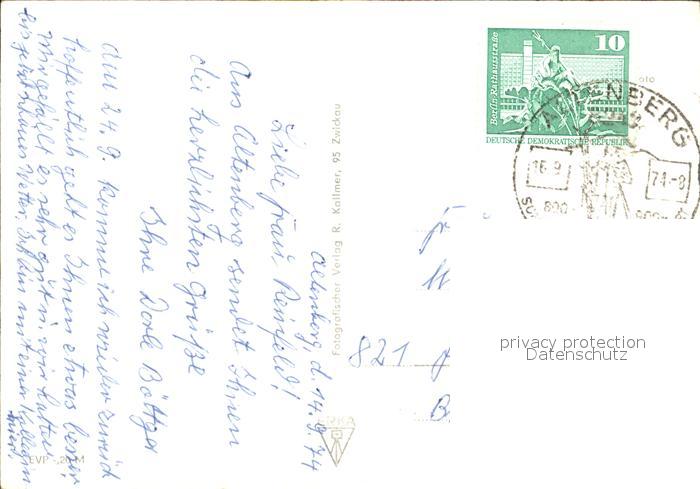 Altenberg, d. 14.9.74
Liebe Frau Reinfeld!
Aus Altenberg sendet Ihnen
die herzlichsten Grüße
Ihre Dorle Böttger
Am 24.9. komme ich wieder zurück
hoffentlich geht es Ihnen etwas besser,
mir gefällt es sehr gut u. wir hatten
bis jetzt schönes Wetter. Ich bin mit einer Kollegin
hier.
EVP -,20 M
Fotografischer Verlag R. Kallmer, 95 Zwickau
10
Berlin, Rathausstraße
DEUTSCHE DEMOKRATISCHE REPUBLIK
ALTENBERG
16.9
74-8
800-
821
B
privacy protection
Datenschutz